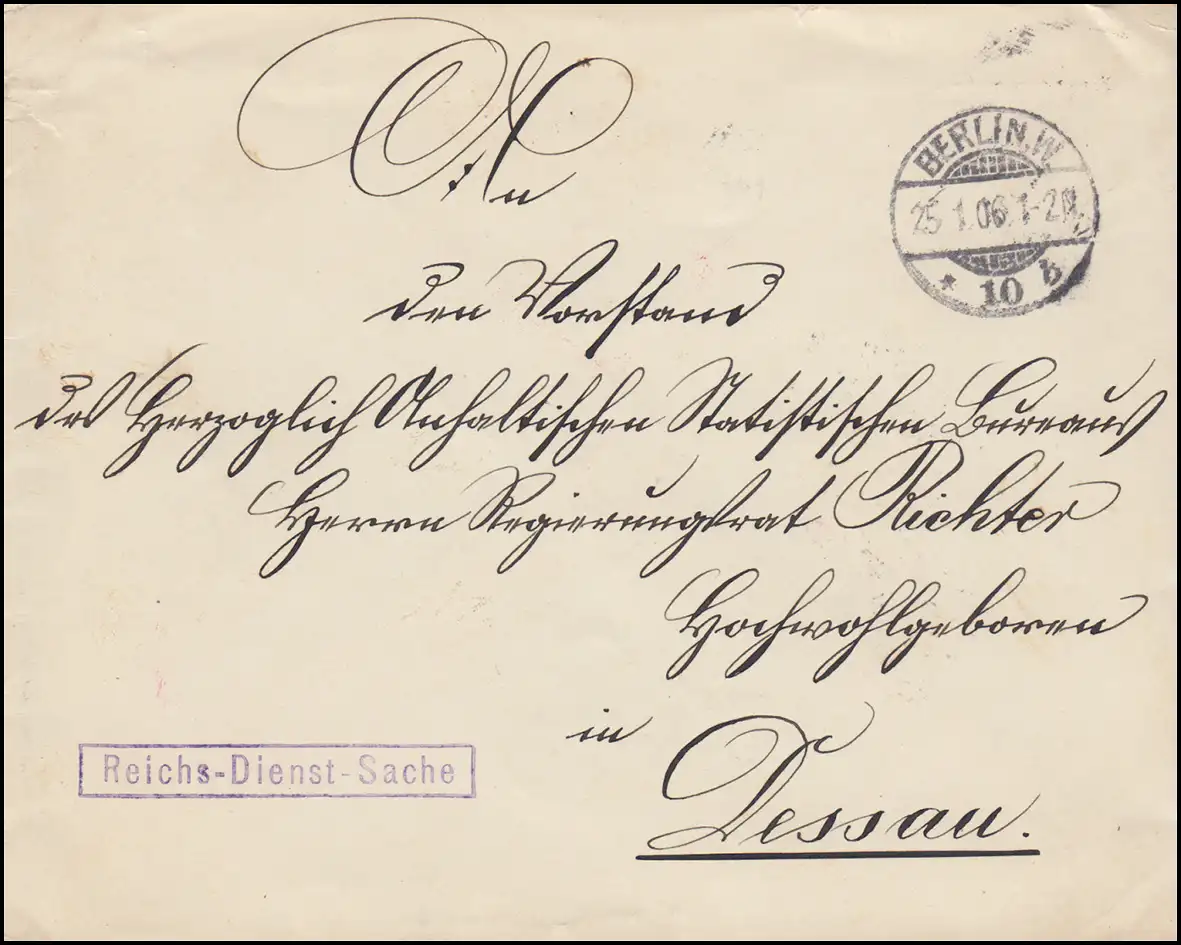 An
BERLIN.W.
25.1.06.1-2N.
* 10 b
den Vorstand
des Herzoglich Anhaltischen Statistischen Bureaus
Herrn Regierungsrat Richter
Hochwohlgeboren
in
Dessau.
Reichs-Dienst-Sache